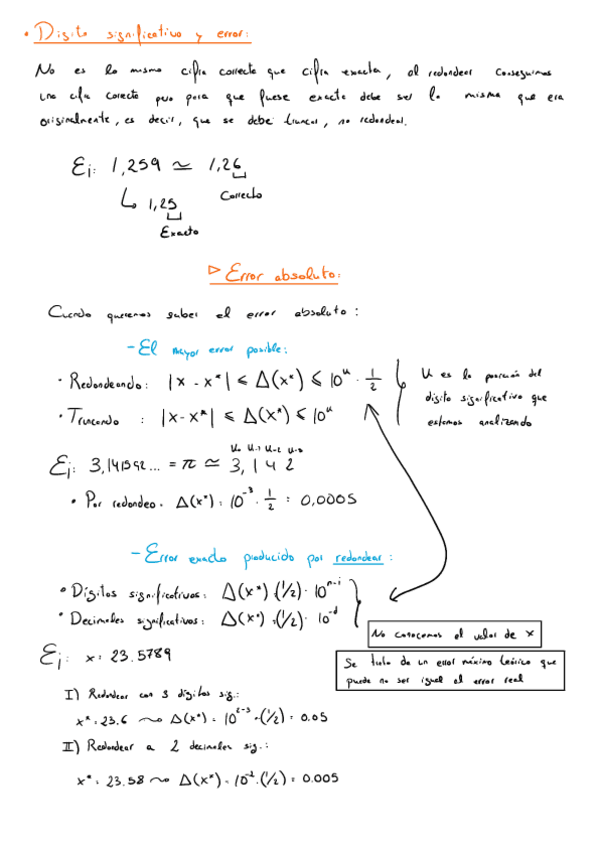 • Dígito significativo y error:
No es lo mismo cifra correcta que cifra exacta, al redondear conseguimos
una cifra correcta pero para que fuese exacta debe ser lo misma que era
originalmente, es decir, que se debe truncar, no redondear.
Ej: 1,259 ≃ 1,26
↳ 1,25 Correcto
Exacto
▷ Error absoluto:
Cuando queremos saber el error absoluto:
- El mayor error posible:
• Redondeando: |x - x*| ≤ Δ(x*) ≤ 10ᵘ · 1/2
• Truncando : |x - x*| ≤ Δ(x*) ≤ 10ᵘ
U es la posición del
dígito significativo que
estamos analizando
U₀ U-1 U-2 U-3
Ej: 3,141592... = π ≃ 3,142
• Por redondeo. Δ(x*) = 10⁻³ · 1/2 = 0,0005
- Error exacto producido por redondear:
• Dígitos significativos: Δ(x*) = (1/2) · 10ⁿ⁻ⁱ
• Decimales significativos: Δ(x*) = (1/2) · 10⁻ᵈ
No conocemos el valor de x
Ej: x = 23.5789
Se trata de un error máximo teórico que
puede no ser igual al error real
I) Redondear con 3 dígitos sig.:
x* = 23.6 ⤳ Δ(x*) = 10²⁻³ · (1/2) = 0.05
II) Redondear a 2 decimales sig.:
x* = 23.58 ⤳ Δ(x*) = 10⁻² · (1/2) = 0.005